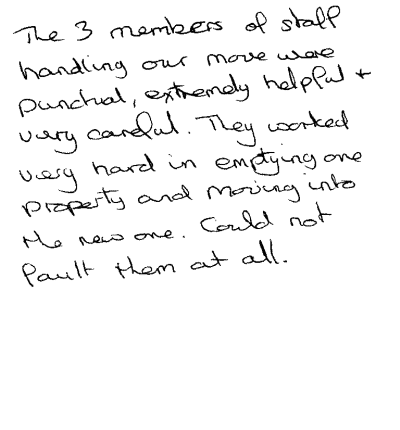 The 3 members of staff
handling our move were
punctual, extremely helpful +
very careful. They worked
very hard in emptying one
property and moving into
the new one. Could not
fault them at all.